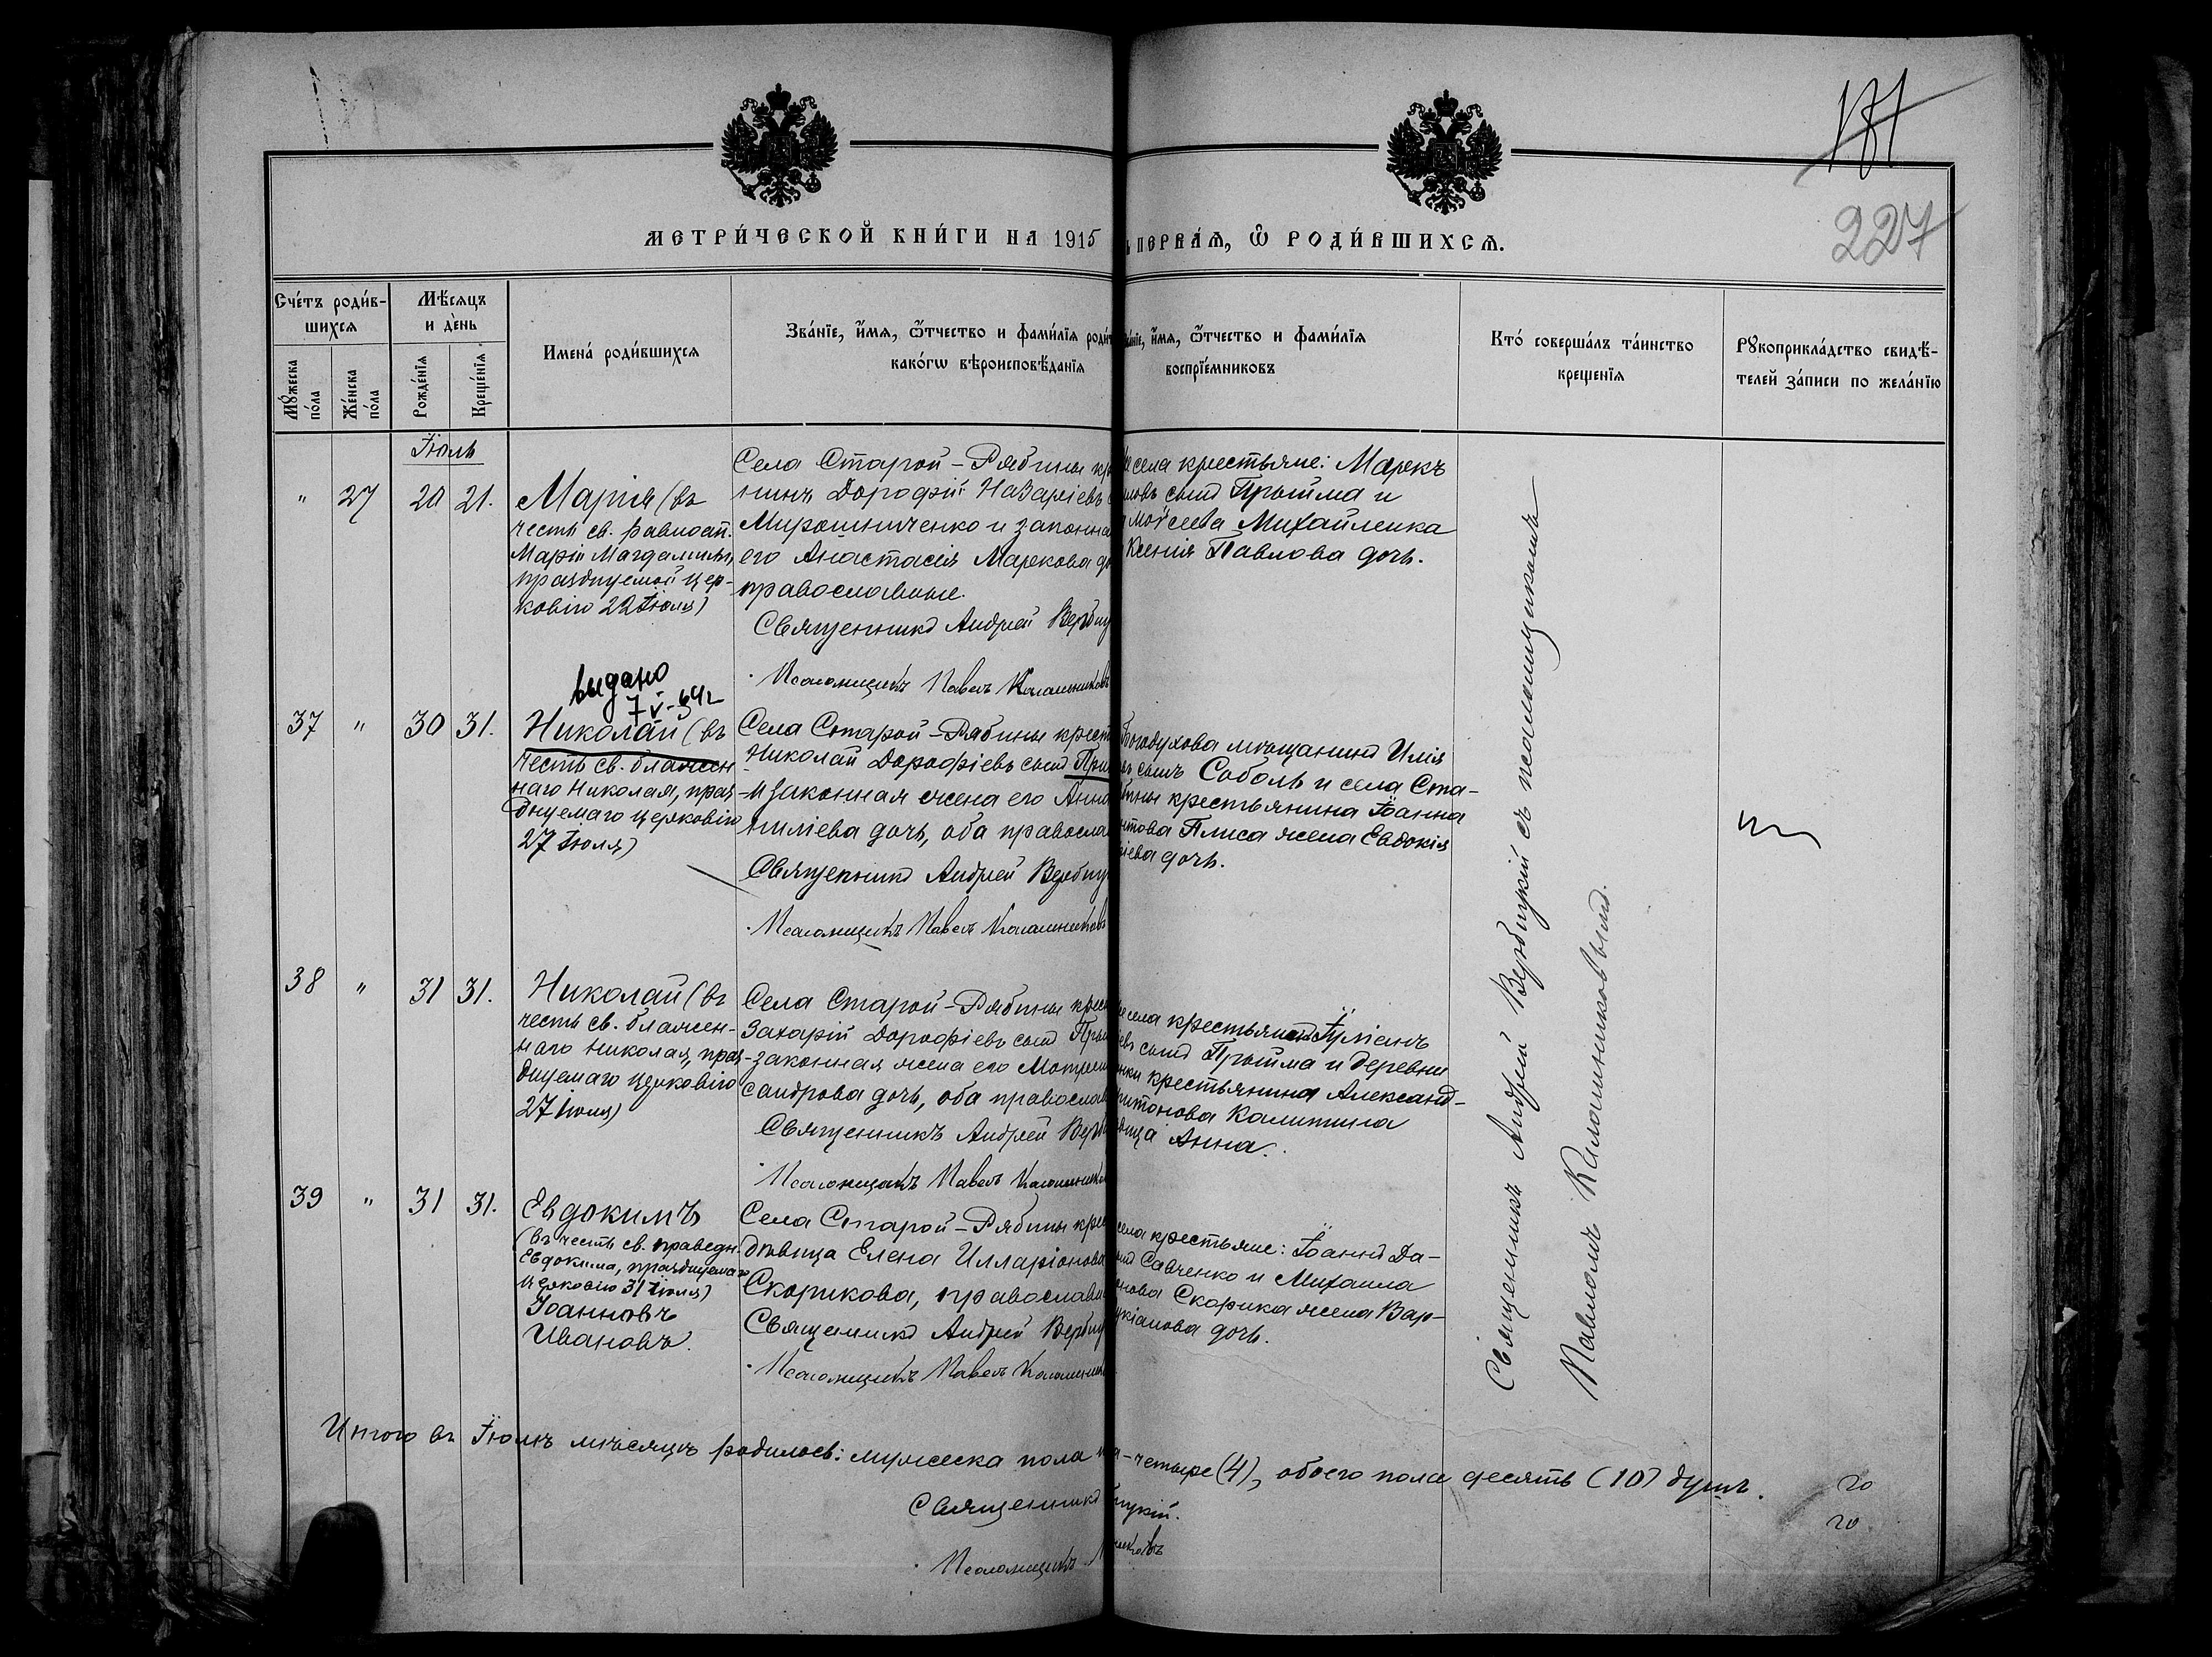 181
227
МЕТРИ́ЧЕСКОЙ КНИ́ГИ НА 1915
ПЕРВА́Я, Ѡ҆ РОДИ́ВШИХСЯ.
Сче́тъ роди́в-
шихся
Му́жеска по́ла
Же́нска по́ла
Мѣ́сяцъ
и де́нь
Рожде́нїя
Креще́нїя
Имена́ роди́вшихся
Зва́нїе, и́мя, ѻ҆́тчество и фами́лїя роди
како́гѡ вѣроисповѣ́данїя
и́мя, ѻ҆́тчество и фами́лїя
воспрїе́мниковъ
Кто́ соверша́лъ та́инство
креще́нїя
Рꙋкоприкла́дство свидѣ́-
телей за́писи по жела́нїю
Іюль
" 27 20 21.
Марія (въ
честь св. равноап.
Маріи Магдалины,
празднуемой цер-
ковію 22 Іюля)
Села Старой-Рябины кр
нинъ Дорофій Назаріевъ
Мирошниченко и законна
его Анастасія Марекова
православные.
Священникъ Андрей Вербиц
Псаломщикъ Павелъ Калашниковъ
села крестьяне: Марекъ
сынъ Прыйма и
Моѵсеева Михайленка
Ксенія Павлова дочь.
выдано
7 V-
37 " 30 31.
Николай (въ
честь св. блажен
наго Николая, праз
днуемаго церковію
27 Іюля)
Села Старой-Рябины крест
Николай Дорофіевъ сынъ При
и законная жена его Анна
нилієва дочь, оба правосла
Священникъ Андрей Вербиц
Псаломщикъ Павелъ Калашниковъ
Богодухова мѣщанинъ Илія
сынъ Соболь и села Ста-
крестьянина Іоанна
Плиса жена Евдокія
дочь.
38 " 31 31.
Николай (въ
честь св. блажен-
наго Николая, праз-
днуемаго церковію
27 Іюля)
Села Старой-Рябины крес
Захарій Дорофіевъ сынъ Пры
законная жена его Матрон
сандрова дочь, оба православ
Священникъ Андрей Верб
Псаломщикъ Павелъ Калашников
села крестьянинъ
сынъ Прыйма и деревни
крестьянина Александ-
ритонова Калитина
Анна.
39 " 31 31.
Евдокимъ
(въ честь св. праведн.
Евдокима, празднуемаго
церковію 31 Іюля)
Іоанновъ
Ивановъ.
Села Старой-Рябины кре
дѣвица Елена Илларіонова
Скорикова, православн
Священникъ Андрей Вербиц
Псаломщикъ Павелъ Калашник
села крестьяне: Іоаннъ Да-
Савченко и Михаила
Скорика жена Вар-
дочь.
Священникъ Андрей Вербицкій съ псаломщикомъ
Павломъ Калашниковымъ.
Итого въ Іюлѣ мѣсяцѣ родилось: мужеска пола
-четыре (4), обоего пола десять (10) душъ.
Священникъ
цкій.
Псаломщикъ